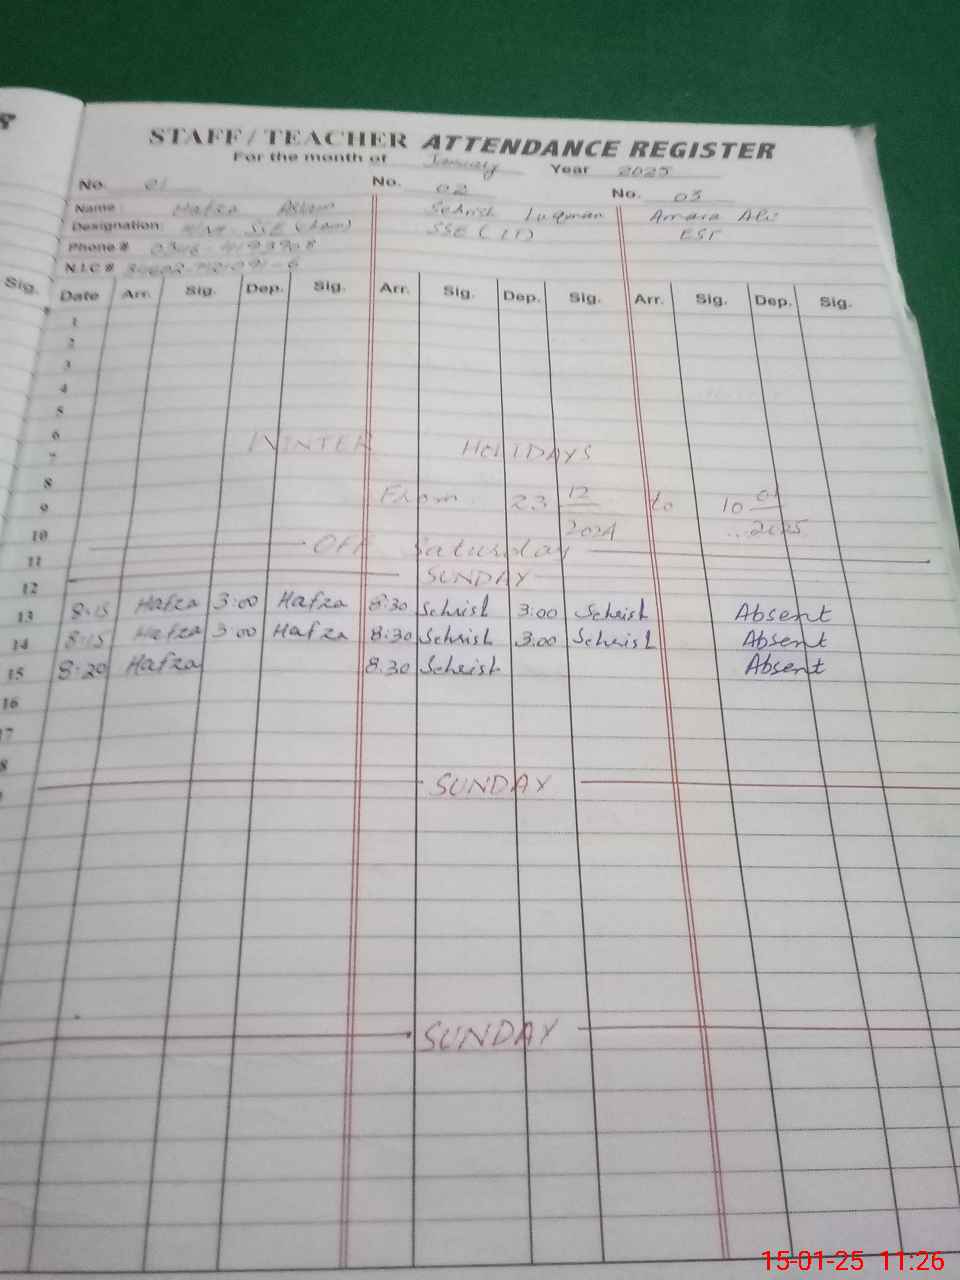 STAFF / TEACHER ATTENDANCE REGISTER
For the month of January Year 2025
No. 01 No. 02 No. 03
Name: Hafza Aslam Sehrish Luqman Amara Ali
Designation: SSE SSE (IT) EST
Phone #
N.I.C #
Sig. Date Arr. Sig. Dep. Sig. Arr. Sig. Dep. Sig. Arr. Sig. Dep. Sig.
1
2
3
4
5
6
WINTER HOLIDAYS
7
8
From 23 12/2024 to 10 01/2025
9
10
OFF Saturday
11
SUNDAY
12
13 8:15 Hafza 3:00 Hafza 8:30 Sehrish 3:00 Sehrish Absent
14 8:15 Hafza 3:00 Hafza 8:30 Sehrish 3:00 Sehrish Absent
15 8:20 Hafza 8:30 Sehrish Absent
16
17
8
SUNDAY
SUNDAY
15-01-25 11:26